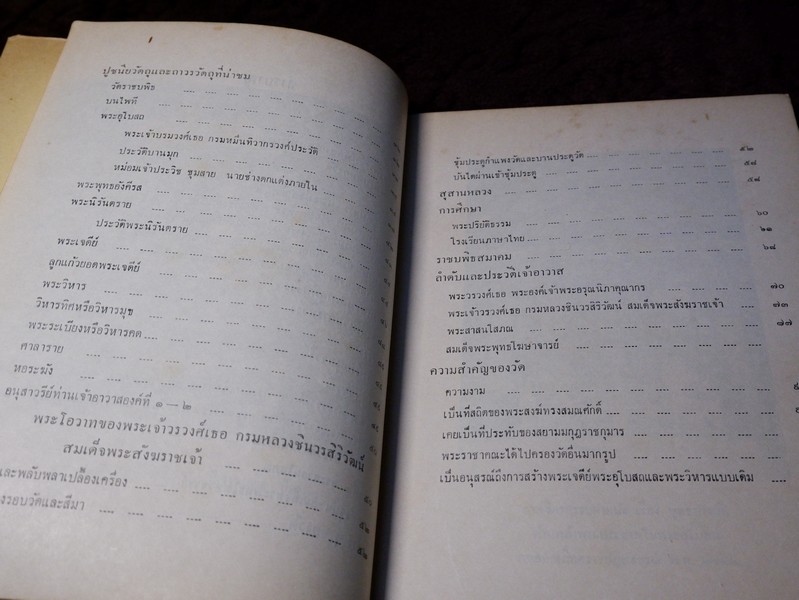 ปูชนียวัตถุและถาวรวัตถุที่น่าชม
วัดราชบพิธ .... .... .... .... .... .... ....
บนไพที .... .... .... .... .... .... ....
พระอุโบสถ .... .... .... .... .... .... ....
พระเจ้าบรมวงศ์เธอ กรมหมื่นทิวากรวงศ์ประวัติ
ประวัติบานมุก .... .... .... .... ....
หม่อมเจ้าประวิช ชุมสาย นายช่างตกแต่งภายใน
พระพุทธอังคีรส .... .... .... .... .... ....
พระนิรันตราย .... .... .... .... .... ....
ประวัติพระนิรันตราย .... .... .... ....
พระเจดีย์ .... .... .... .... .... ....
ลูกแก้วยอดพระเจดีย์ .... .... .... .... ....
พระวิหาร .... .... .... .... .... ....
วิหารทิศหรือวิหารมุข .... .... .... .... ....
พระระเบียงหรือวิหารคด .... .... .... .... ....
ศาลาราย .... .... .... .... .... ....
หอระฆัง .... .... .... .... .... ....
อนุสาวรีย์ท่านเจ้าอาวาสองค์ที่ ๑ — ๒ .... .... ....
พระโอวาทของพระเจ้าวรวงศ์เธอ กรมหลวงชินวรสิริวัฒน์
สมเด็จพระสังฆราชเจ้า .... .... .... ....
และพลับพลาเปลื้องเครื่อง .... .... .... ....
รอบวัดและสีมา .... .... .... .... .... ๕๒
ซุ้มประตูกำแพงวัดและบานประตูวัด .... .... .... ๕๒
บันไดผ่านเข้าซุ้มประตู .... .... .... .... ๕๘
สุสานหลวง .... .... .... .... .... ๕๘
การศึกษา
พระปริยัติธรรม .... .... .... .... .... ๖๐
โรงเรียนภาษาไทย .... .... .... .... ....
ราชบพิธสมาคม .... .... .... .... .... ๖๘
ลำดับและประวัติเจ้าอาวาส
พระวรวงศ์เธอ พระองค์เจ้าพระอรุณนิภาคุณากร .... .... ๗๐
พระเจ้าวรวงศ์เธอ กรมหลวงชินวรสิริวัฒน์ สมเด็จพระสังฆราชเจ้า .... ๗๓
พระสาสนโสภณ .... .... .... .... .... ๗๗
สมเด็จพระพุทธโฆษาจารย์ .... .... .... ....
ความสำคัญของวัด
ความงาม .... .... .... .... ....
เป็นที่สถิตของพระสงฆ์ทรงสมณศักดิ์ .... .... ....
เคยเป็นที่ประทับของสยามมกุฎราชกุมาร .... .... ....
พระราชาคณะได้ไปครองวัดอื่นมากรูป .... .... ....
เป็นอนุสรณ์ถึงการสร้างพระเจดีย์พระอุโบสถและพระวิหารแบบเดิม ....